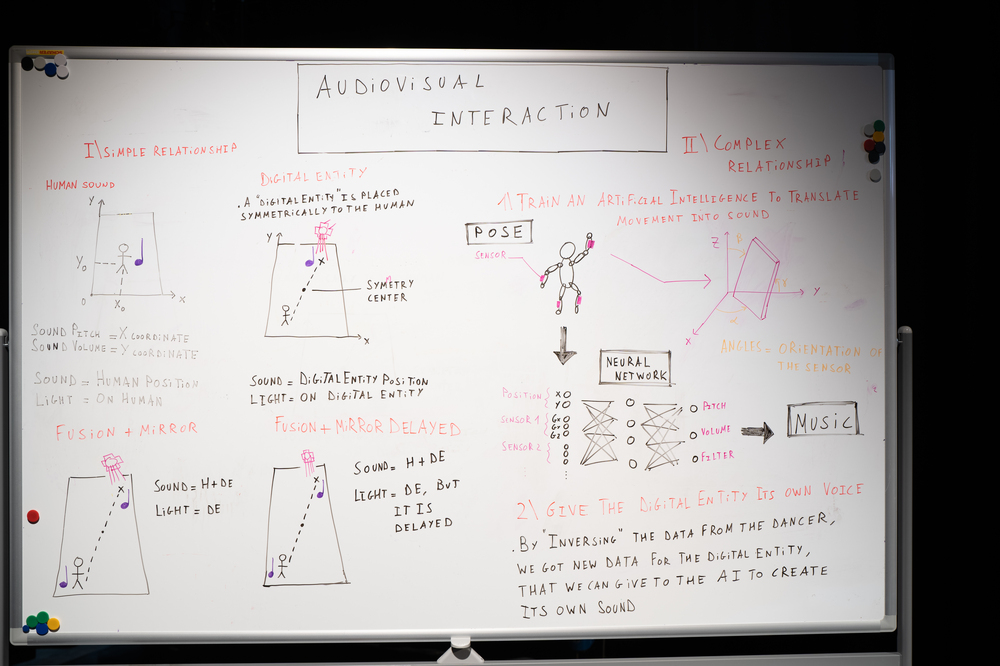 AUDIOVISUAL
INTERACTION
I\ SIMPLE RELATIONSHIP
HUMAN SOUND
Y
Y0
0
X0
X
SOUND PITCH = X COORDINATE
SOUND VOLUME = Y COORDINATE
SOUND = HUMAN POSITION
LIGHT = ON HUMAN
DIGITAL ENTITY
. A "DIGITAL ENTITY" IS PLACED
SYMMETRICALLY TO THE HUMAN
Y
X
SYMETRY
CENTER
X
SOUND = DIGITAL ENTITY POSITION
LIGHT = ON DIGITAL ENTITY
FUSION + MIRROR
X
SOUND = H+DE
LIGHT = DE
FUSION + MIRROR DELAYED
X
SOUND = H+DE
LIGHT = DE, BUT
IT IS
DELAYED
II\ COMPLEX
RELATIONSHIP !
1\ TRAIN AN ARTIFICIAL INTELLIGENCE TO TRANSLATE
MOVEMENT INTO SOUND
POSE
SENSOR
Z
Y
X
ANGLES = ORIENTATION OF
THE SENSOR
NEURAL
NETWORK
POSITION { X
Y
SENSOR 1 { Gx
Gy
Gz
SENSOR 2 {
PITCH
VOLUME
FILTER
MUSIC
2\ GIVE THE DIGITAL ENTITY ITS OWN VOICE
. BY "INVERSING" THE DATA FROM THE DANCER,
WE GOT NEW DATA FOR THE DIGITAL ENTITY,
THAT WE CAN GIVE TO THE AI TO CREATE
ITS OWN SOUND